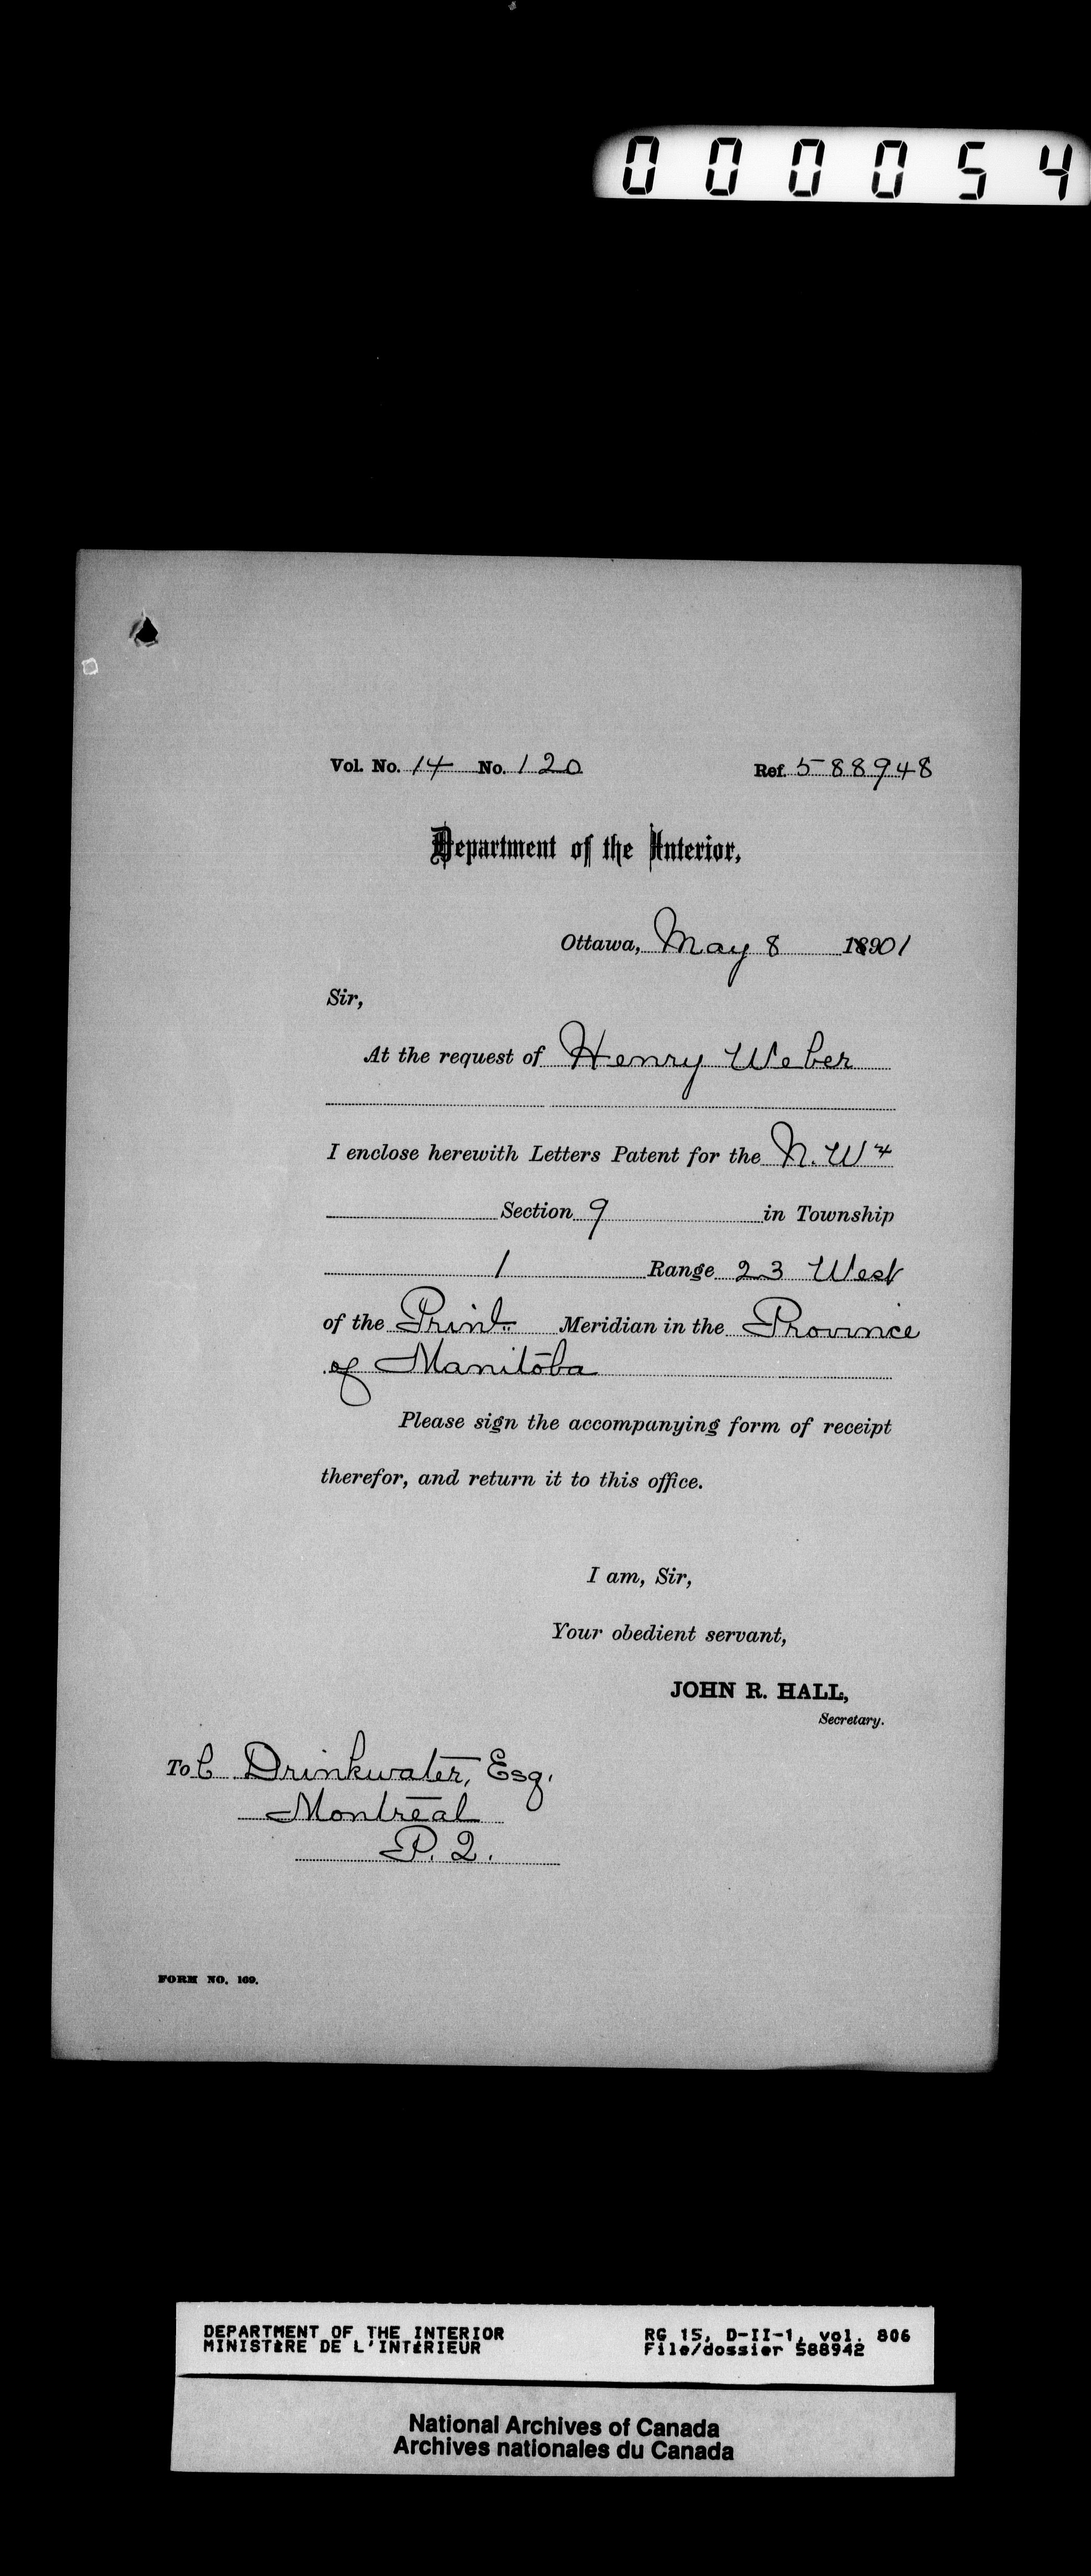 000054
Vol. No. 14 No. 120 Ref. 588948
Department of the Interior,
Ottawa, May 8 18901
Sir,
At the request of Henry Weber
I enclose herewith Letters Patent for the N. W 4
Section 9 in Township
1 Range 23 West
of the Prinl. Meridian in the Province
of Manitoba
Please sign the accompanying form of receipt
therefor, and return it to this office.
I am, Sir,
Your obedient servant,
JOHN R. HALL,
Secretary.
To C Drinkwater, Esq.
Montreal
P. Q.
FORM NO. 169.
DEPARTMENT OF THE INTERIOR RG 15, D-II-1, vol. 806
MINISTÈRE DE L'INTÉRIEUR File/dossier 588942
National Archives of Canada
Archives nationales du Canada